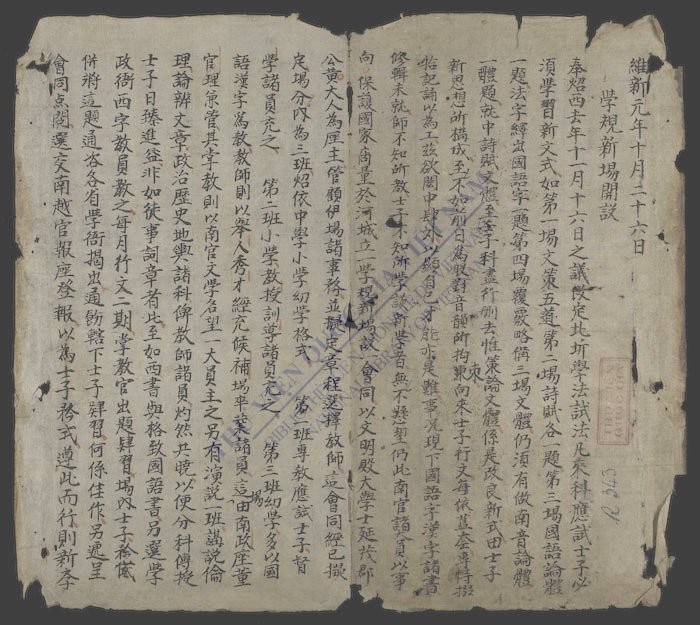 維新元年十月二十六日
學規新場開說
奉炤西去年十一月十六日之議改定北圻學法試法凡來科應試士子必
須學習新文式如第一場文策五道第二場詩賦各一題第三場國語論體
一題法字繹出國語字一題第四場覆覈略倣三場文體仍須有做南音論體
一體題就中詩賦文體至子科盡行刪去惟策論文體係是改良新式由士子
新思想所構成至不如前日為駢對音韻所拘束向來士子行文每依舊套專務掇
拾記誦以為工茲欲閎中肆外以顯自己才能亦是難事況現下國語字漢字諸書
修輯未就師不知所教士子不知所學談新學者無不懸望仍此南官諸員以事
向保護國家商量於河城立一學程新場做會同以文明殿大學士延茂郡
公黃大人為座主管顧伊場諸事務並擬定章程選擇教師這會同經已擬
定場分內為三班炤依中學小學幼學格式 第一班專教應試士子督
學諸員充之 第二班小學教授訓導諸員充之 第三班幼學多以國
語漢字為教教師則以舉人秀才經充候補場卒業諸員這場由南政座董
官理兼管其掌教則以南官文學名望一大員主之另有演說一班講說倫
理論辨文章政治歷史地輿諸科俾教師諸員灼然共曉以便分科傳授
士子日臻進益非如徒事詞章者比至如西書與格致國語書另選學
政衙西字教員教之每月行文二期掌教官出題肄習場內士子
併將這題通咨各省學衙揭出通飭轄下士子肄習何係佳作另遞呈
會同点閱選交南越官報座登報以為士子矜式遵此而行則新學
R 343